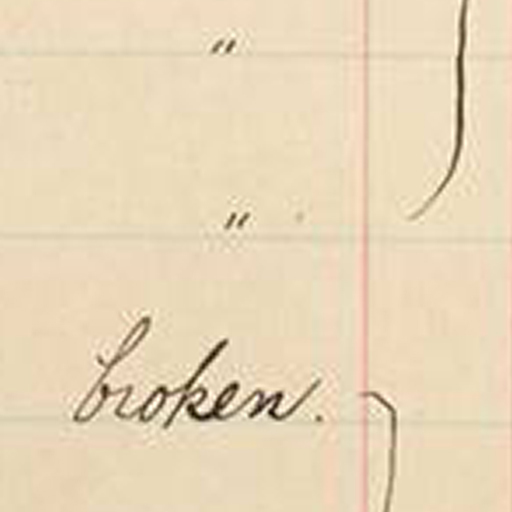 "
"
broken.